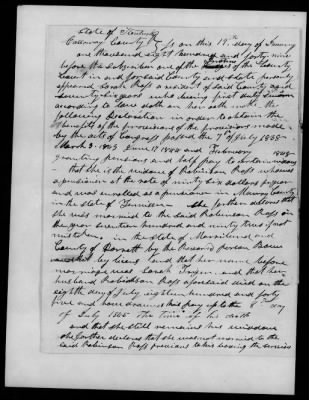 State of Kentucky
Calloway County } On this 19th day of January
one thousand eight hundred and forty nine
before the subscriber one of the Justices of the County
Court in and for said County and State personally
appeared Sarah Ross a resident of said County aged
seventy who being first duly sworn
according to Law doth on her oath make the
following Declaration in order to obtain the
benefits of the provisions made
by the act of Congress passed the 7th of July 1838
March 3. 1843 June 17 1844 and February 1848
granting pensions and half pay to certain widows
that she is the widow of Robinson Ross who was
a pensioner at the rate of ninety six dollars per year
and was enrolled as a pensioner in Murray County
in the state of Tennessee She further declares that
she was married to the said Robinson Ross in
the year seventeen hundred and ninety three if not
mistaken in the state of Maryland and
County of by the Parson
and that her name before
marriage was Sarah and that her
husband Robinson Ross aforesaid died on the
eighth day of July eighteen hundred and forty
five and have drawn his pay up to the 8th day
of July 1845 the time of his death
and that she still remains his widow
she further declares that she was not married to the
said Robinson Ross previous to his leaving the service